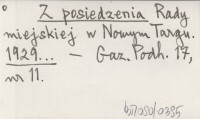 Z posiedzenia Rady
miejskiej w Nowym Targu.
1929... — Gaz. Podh. 17,
nr 11.